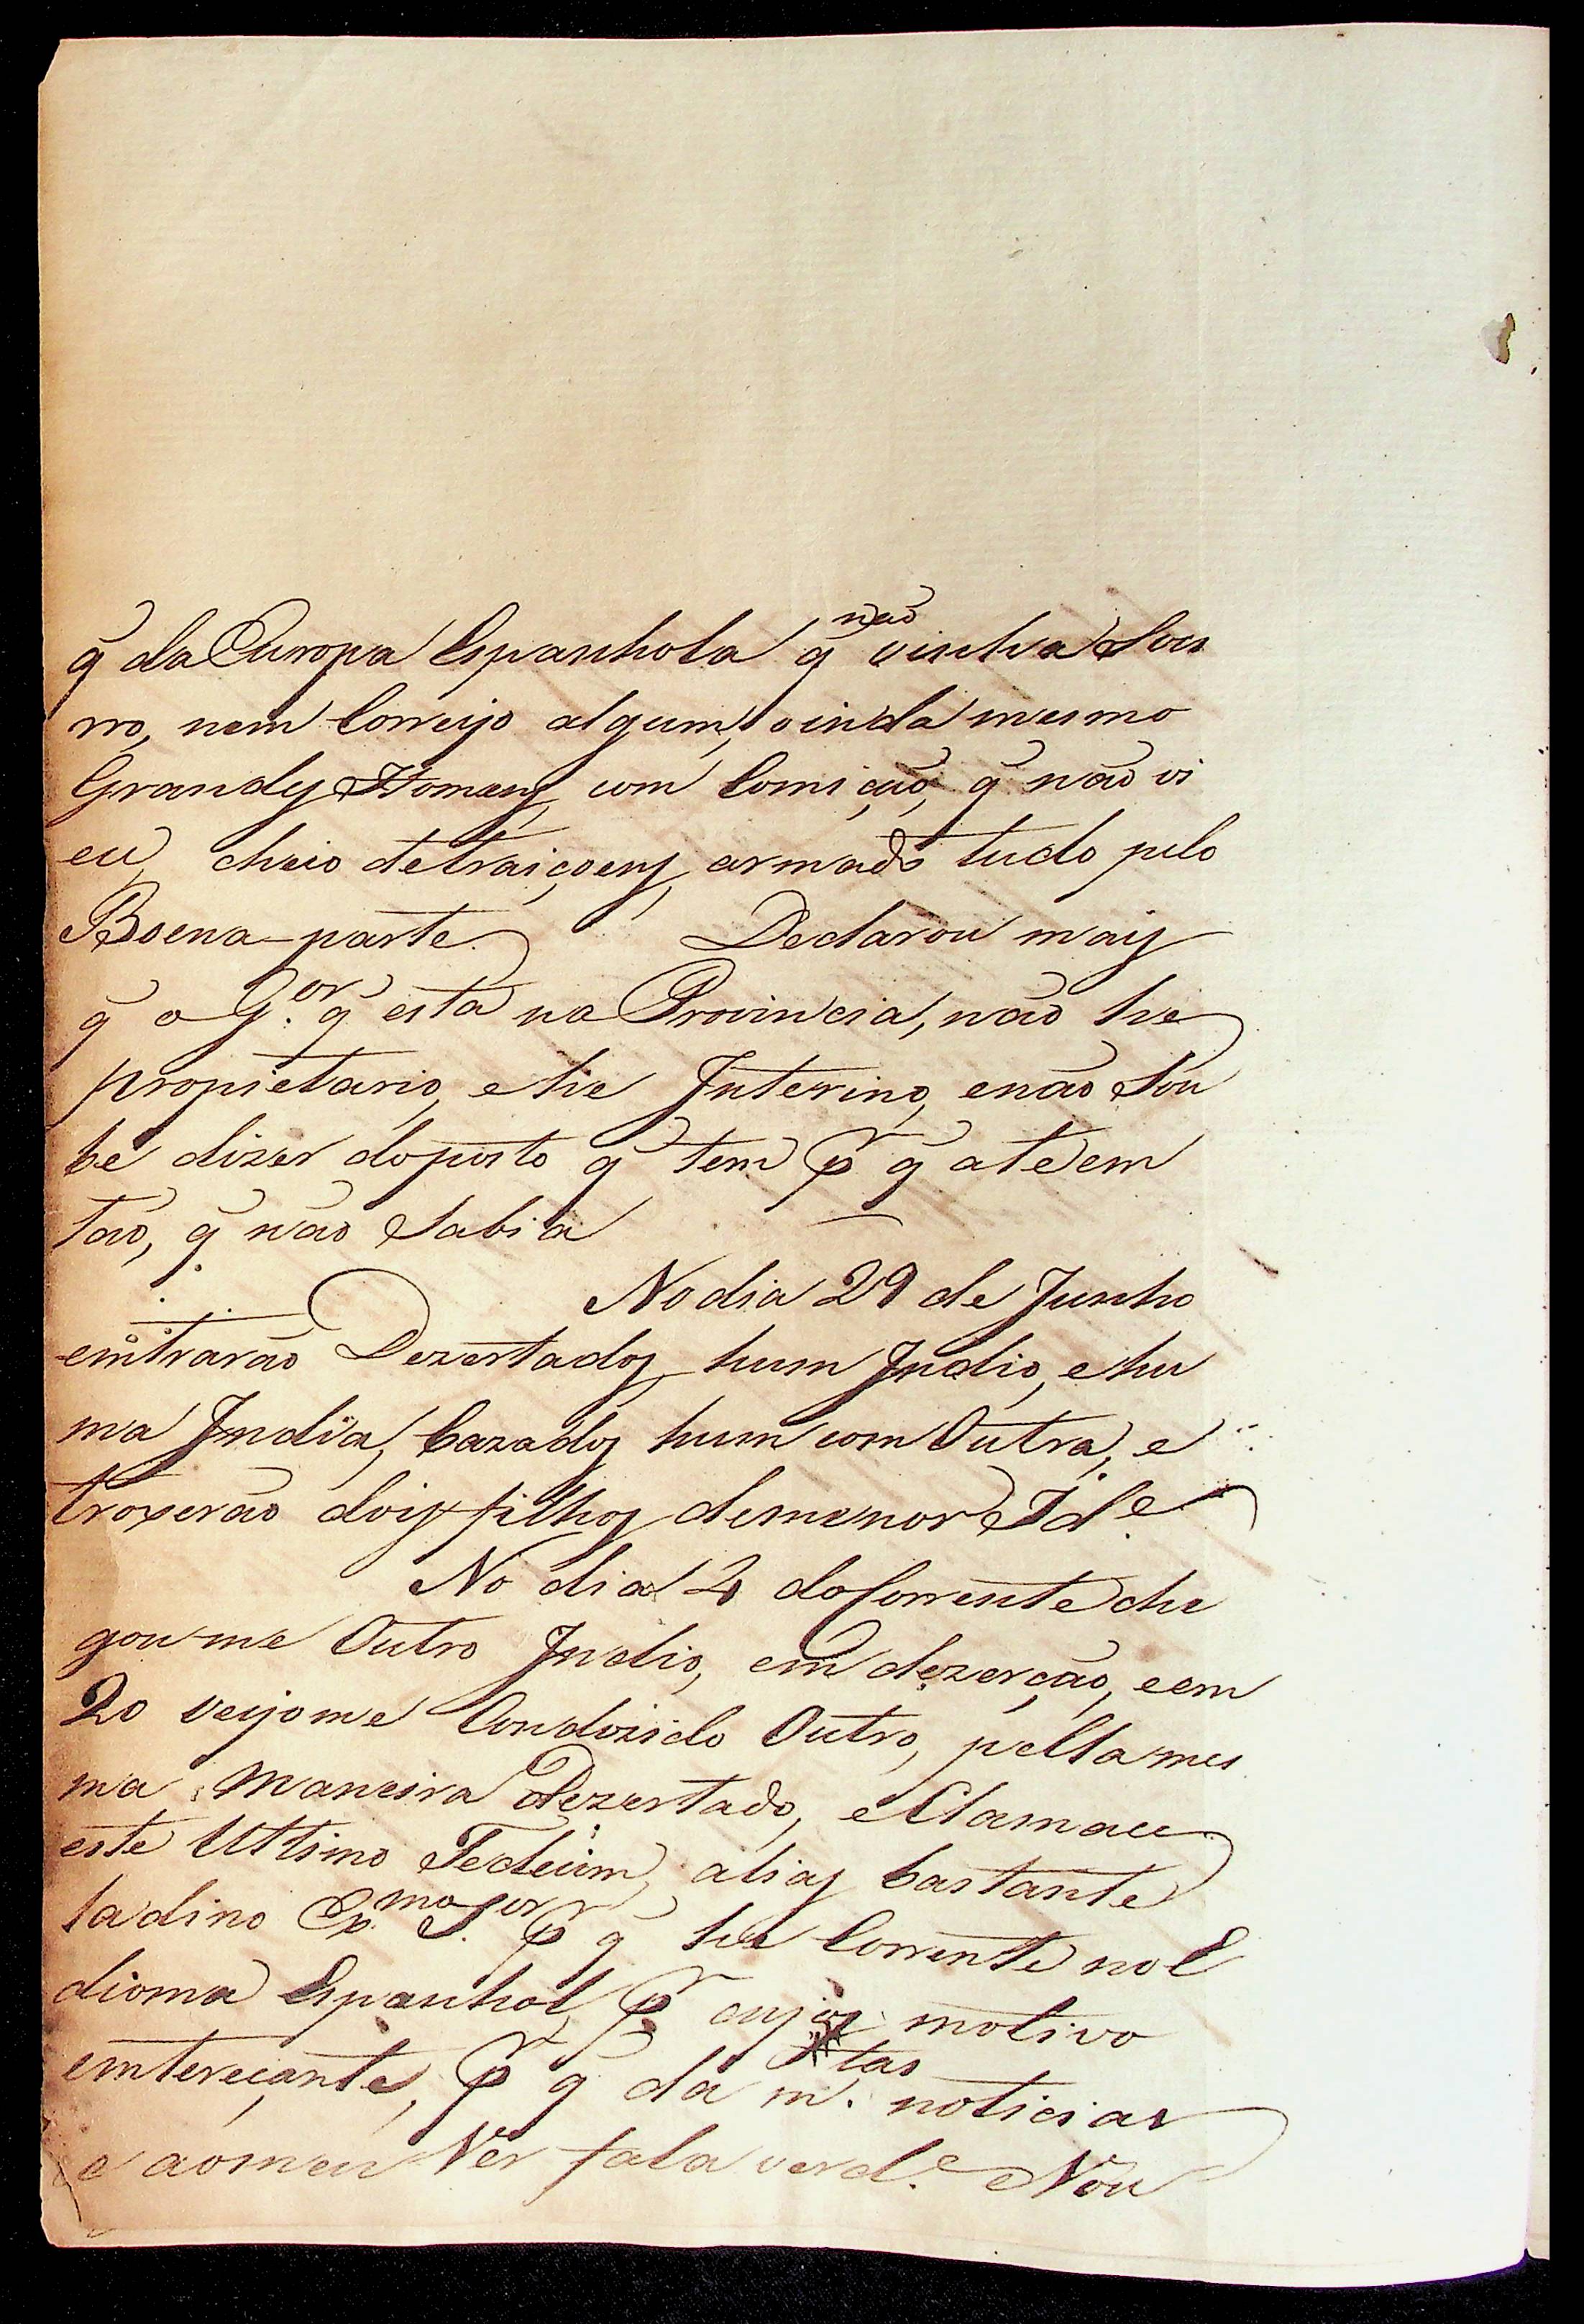 q̃ da Europa Espanhola q̃ não vinha Socu
rro, nem Correijo algum, e inda mesmo
Grandes Homens com Comição, q̃ não vi
eu, cheio detraiçoens, armado tudo pelo
Boena-parte. Declarou mais
q̃ o G.or q̃ está na Provincia, não he
propietario, e he Interino, enão Sou
be dizer doposto q̃ tem p.r q̃ ateem
tão, q̃ não Sabia
No dia 29 de Junho
emtrarão Dezertados hum Indio, e hu
ma India, Cazados hum com Outra, e
troxerão dois filhos demenor Id.e
No dia 2 do Corrente che
gou-me Outro Indio, em dezerção, e em
20 veijome Condozido Outro, pella mes
ma Maneira Dezertado, e Clamace
este Ultimo Tedeum, alias bastante
ladino Ex.mo S.or p.r q̃ he Corrente no E
dioma Espanhol, p.r cujos motivo
emtereçante, p.r q̃ da m.tas noticias
e aomeu Ver fala verd.e e Nou